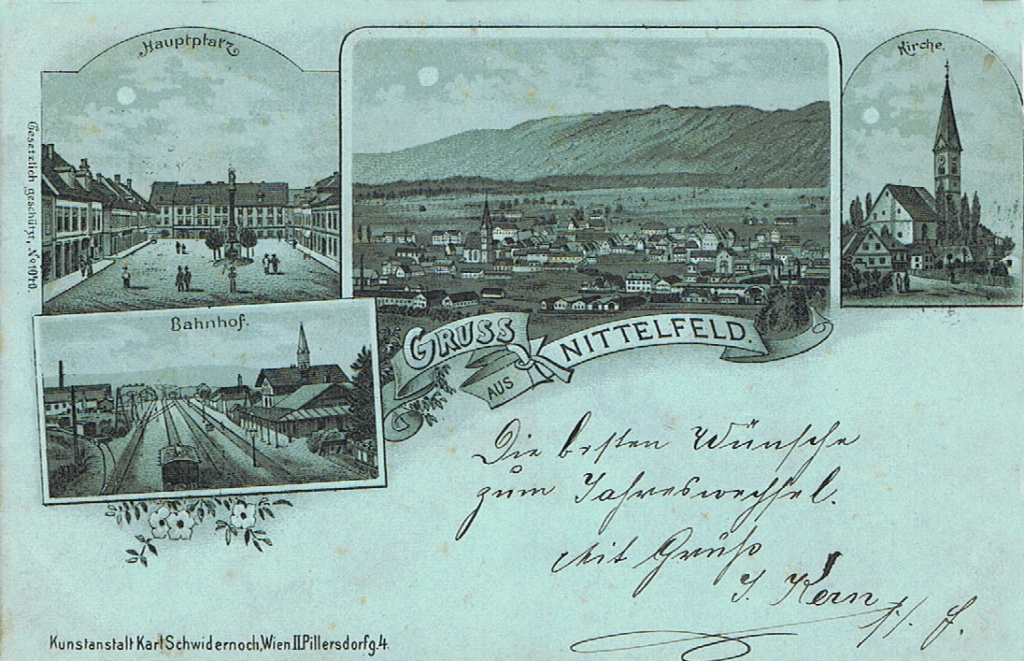 Hauptplatz
Kirche.
Gesetzlich geschützt, No
Bahnhof.
GRUSS
AUS
NITTELFELD.
Die besten Wünsche
zum Jahreswechsel.
Mit Gruß
J. Kern
Kunstanstalt Karl Schwidernoch, Wien II. Pillersdorfg. 4.